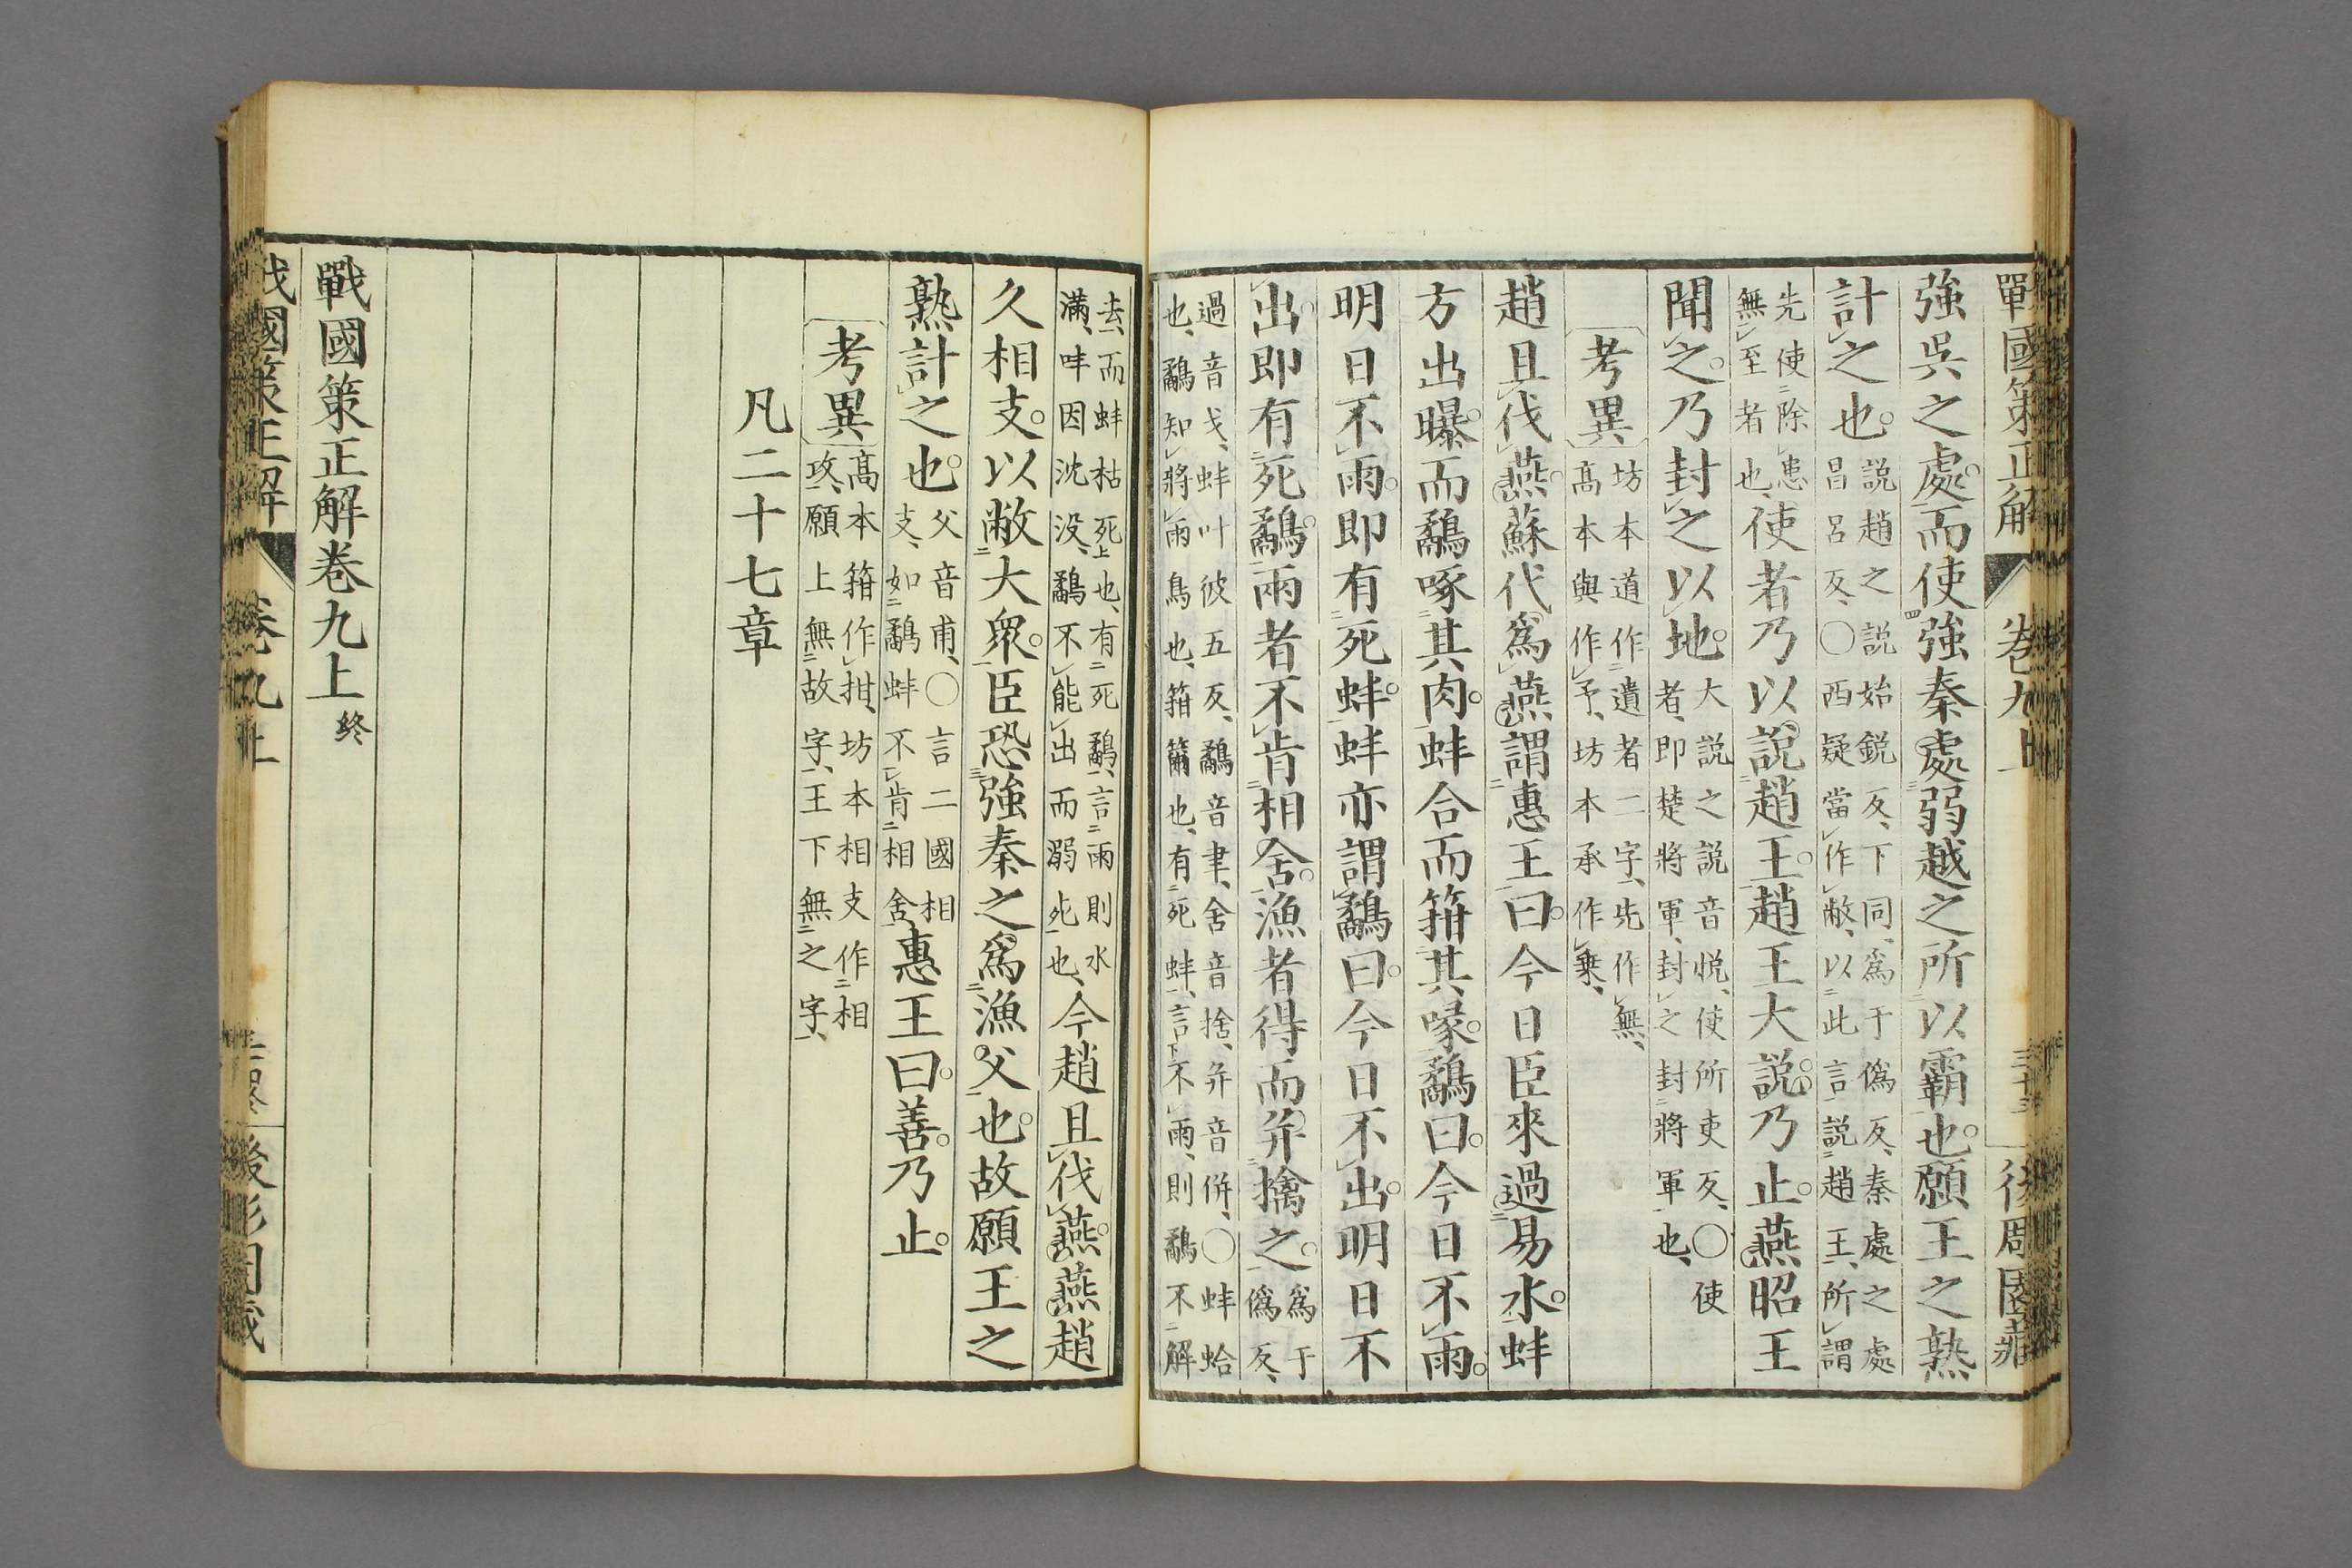 戰國策正解 卷九上 三十三 後周園
強吳之處而使強秦處弱越之所以霸也願王之熟
計之也說趙之說始銳反下同爲于僞反秦處之處昌呂反○西疑當作敝以此言說趙王所謂
先使除患無至者也使者乃以說趙王趙王大說乃止燕昭王
聞之乃封之以地大說之說音悅使所吏反○使者即楚將軍封之封將軍也
考異坊本道作遺者二字先作無高本與作予坊本承作乗
趙且伐燕蘇代爲燕謂惠王曰今日臣來過易水蚌
方出曝而鷸啄其肉蚌合而箝其喙鷸曰今日不雨
明日不雨即有死蚌蚌亦謂鷸曰今日不出明日不
出即有死鷸兩者不肯相舍漁者得而弁擒之爲于僞反
過音戈蚌叶彼五反鷸音聿舍音捨弁音併○蚌蛤也鷸知將雨鳥也箝籋也有死蚌言不雨則鷸不解
去而蚌枯死也有死鷸言雨則水滿蚌因沈没鷸不能出而溺死也今趙且伐燕燕趙
久相支以敝大衆臣恐強秦之爲漁父也故願王之
熟計之也父音甫○言二國相支如鷸蚌不肯相舍惠王曰善乃止
考異高本箝作拑坊本相支作相攻願上無故字王下無之字
凡二十七章
戰國策正解卷九上終
戰國策正解 卷九上